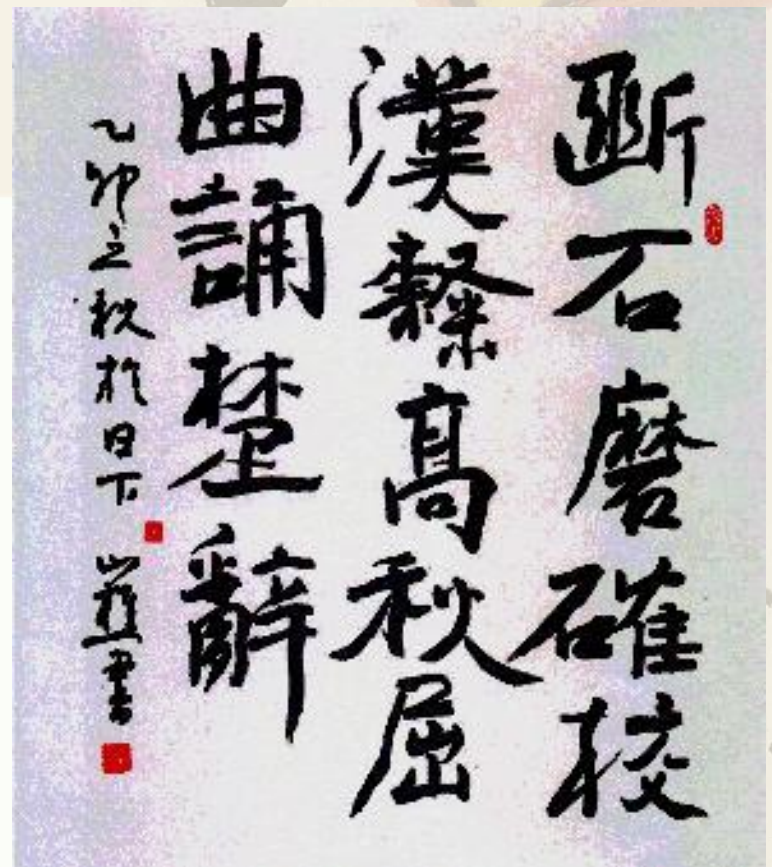 斷石磨確校
漢隸高秋屈
曲誦楚辭
乙卯立秋於日下 書